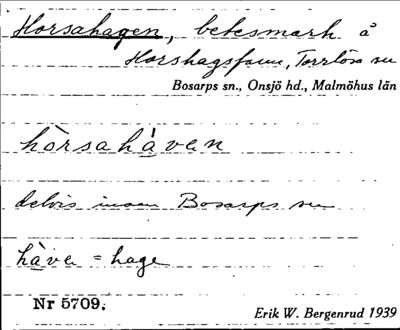 Horsahagen, betesmark å
Horshagsfarm, Torrlösa sn
Bosarps sn., Onsjö hd., Malmöhus län
hòrsahàven
delvis inom Bosarps sn
hàve = hage
Nr 5709.
Erik W. Bergenrud 1939